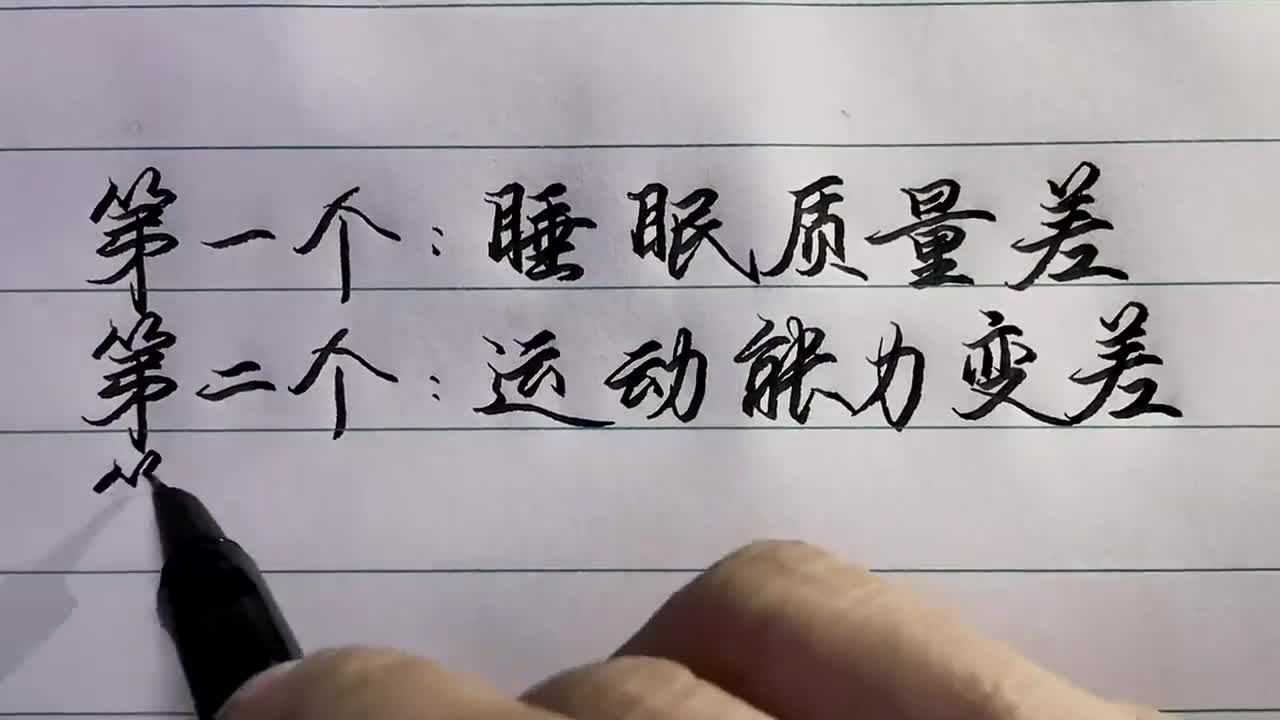 第一个：睡眠质量差
第二个：运动能力变差